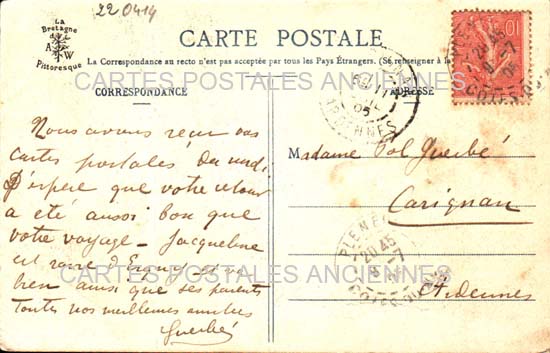 220414
La
Bretagne
A W
Pittoresque
CARTE POSTALE
La Correspondance au recto n'est pas acceptée par tous les Pays Étrangers. (Se renseigner à la
CARTES POSTALES ANCIENNES
CORRESPONDANCE
ADRESSE
10
Nous avons reçu vos
cartes postales du midi
J'espère que votre retour
a été aussi bon que
votre voyage - Jacqueline
est
bien ainsi que ses parents
Toutes nos meilleures amitiés
Guerbé
Madame Pol Guerbé
Carignan
Ardennes
ARDENNES
20 45
CARTES POSTALES ANCIENNES